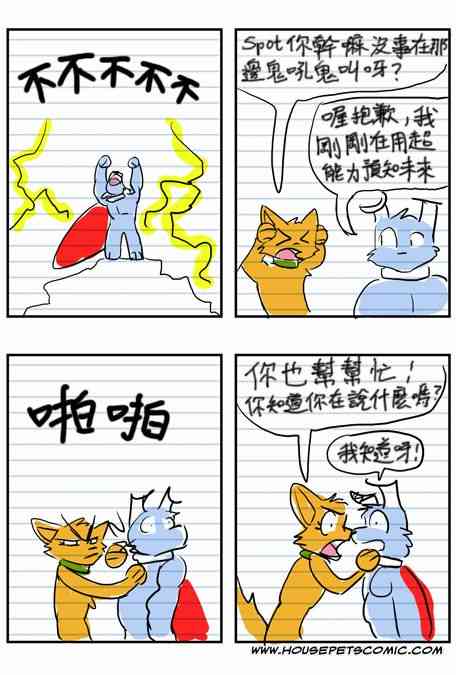 不不不不不
Spot你幹嘛沒事在那
邊鬼吼鬼叫呀？
喔抱歉，我
剛剛在用超
能力預知未來
啪啪
你也幫幫忙！
你知道你在說什麼嗎？
我知道呀！
WWW.HOUSEPETSCOMIC.COM